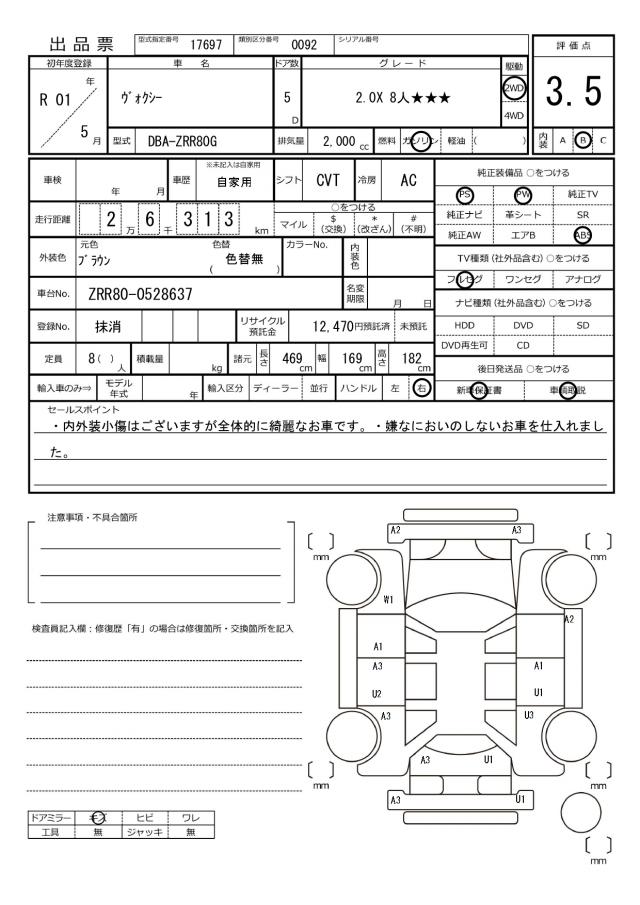 出品票 型式指定番号 17697 類別区分番号 0092 シリアル番号
評価点
3.5
内装 A B C
初年度登録 車名 ドア数 グレード 駆動
R 01 年 ヴォクシー 5 D 2.0X 8人★★★ 2WD
4WD
5 月 型式 DBA-ZRR80G 排気量 2,000 cc 燃料 ガソリン 軽油 ( )
車検 年 月 車歴 ※未記入は自家用 自家用 シフト CVT 冷房 AC
走行距離 2 万 6 千 3 1 3 km
○をつける
マイル $ (交換) * (改ざん) # (不明)
外装色 元色 ブラウン 色替 ( 色替無 ) カラーNo. 内装色
車台No. ZRR80-0528637 名変期限 月 日
登録No. 抹消 リサイクル預託金 12,470円預託済 未預託
定員 8( ) 人 積載量 kg 諸元 長さ 469 cm 幅 169 cm 高さ 182 cm
輸入車のみ⇒ モデル年式 年 輸入区分 ディーラー 並行 ハンドル 左 右
純正装備品 ○をつける
PS PW 純正TV
純正ナビ 革シート SR
純正AW エアB ABS
TV種類 (社外品含む) ○をつける
フルセグ ワンセグ アナログ
ナビ種類 (社外品含む) ○をつける
HDD DVD SD
DVD再生可 CD
後日発送品 ○をつける
新車保証書 車輌取説
セールスポイント
・内外装小傷はございますが全体的に綺麗なお車です。・嫌なにおいのしないお車を仕入れまし
た。
注意事項・不具合箇所
検査員記入欄：修復歴「有」の場合は修復箇所・交換箇所を記入
ドアミラー キズ ヒビ ワレ
工具 無 ジャッキ 無
A2 A3
mm mm
W1
A2
A1
A3 A1
U2 U1
A3 U3
A3 U1
mm mm
A3 U1
mm